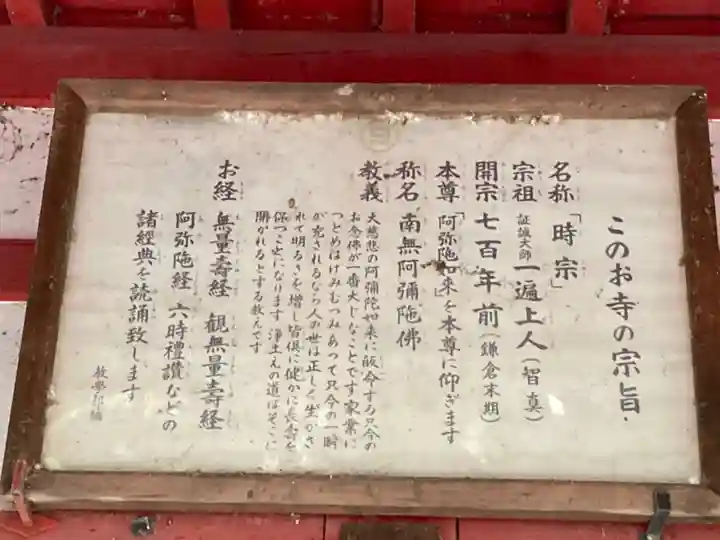 このお寺の宗旨
名称「時宗」
宗祖 証誠大師 一遍上人（智真）
開宗 七百年前（鎌倉末期）
本尊「阿弥陀如来」を本尊に仰ぎます
称名 南無阿彌陀佛
教義 大慈悲の阿彌陀如来に歸命する只今の
お念佛が一番大じなことです家業に
つとめはげみむつみあつて只今の一瞬
が充されるなら人の世は正しく生かさ
れて明るさを増し皆倶に健かに長壽を
保つことになります浄土えの道はそこに
開かれるとする教えです
お経 無量壽経 観無量壽経
阿弥陀経 六時禮讃などの
諸經典を読誦致します
教學部編